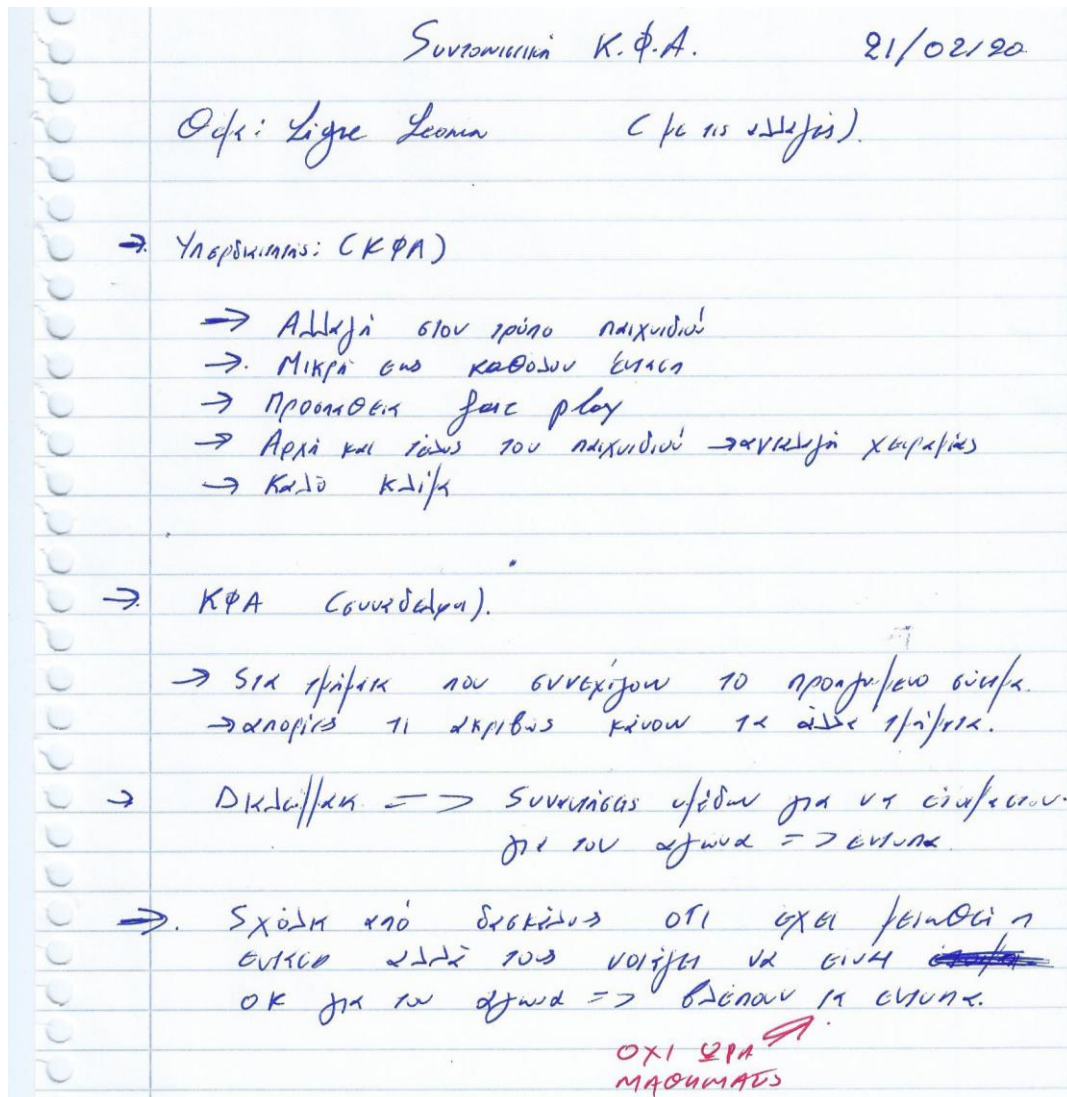 Συντονιστική Κ.Φ.Α. 21/02/20
Θέμα: Ligne (με τις αλλαγές).
→ (ΚΦΑ)
→ Αλλαγή στον τρόπο παιχνιδιού
→ Μικρή εως καθόλου ένταση
→ Προσπάθεια fair play
→ Αρχή και τέλος του παιχνιδιού → ανταλλαγή χειραψίας
→ Καλό κλίμα
→ ΚΦΑ (συνάδελφοι).
→ Στα τμήματα που συνεχίζουν το προηγούμενο σύστημα.
→ απορίες τι ακριβώς κάνουν τα άλλα τμήματα.
→ Διάλειμμα => Συναντήσεις ομάδων για να
για τον αγώνα => έντυπα.
→ Σχόλια από δασκάλους οτι έχει μειωθεί η
ένταση αλλά τους νοιάζει να είναι
ΟΚ για τον αγώνα => βλέπουν τα έντυπα.
ΟΧΙ ΩΡΑ
ΜΑΘΗΜΑΤΟΣ